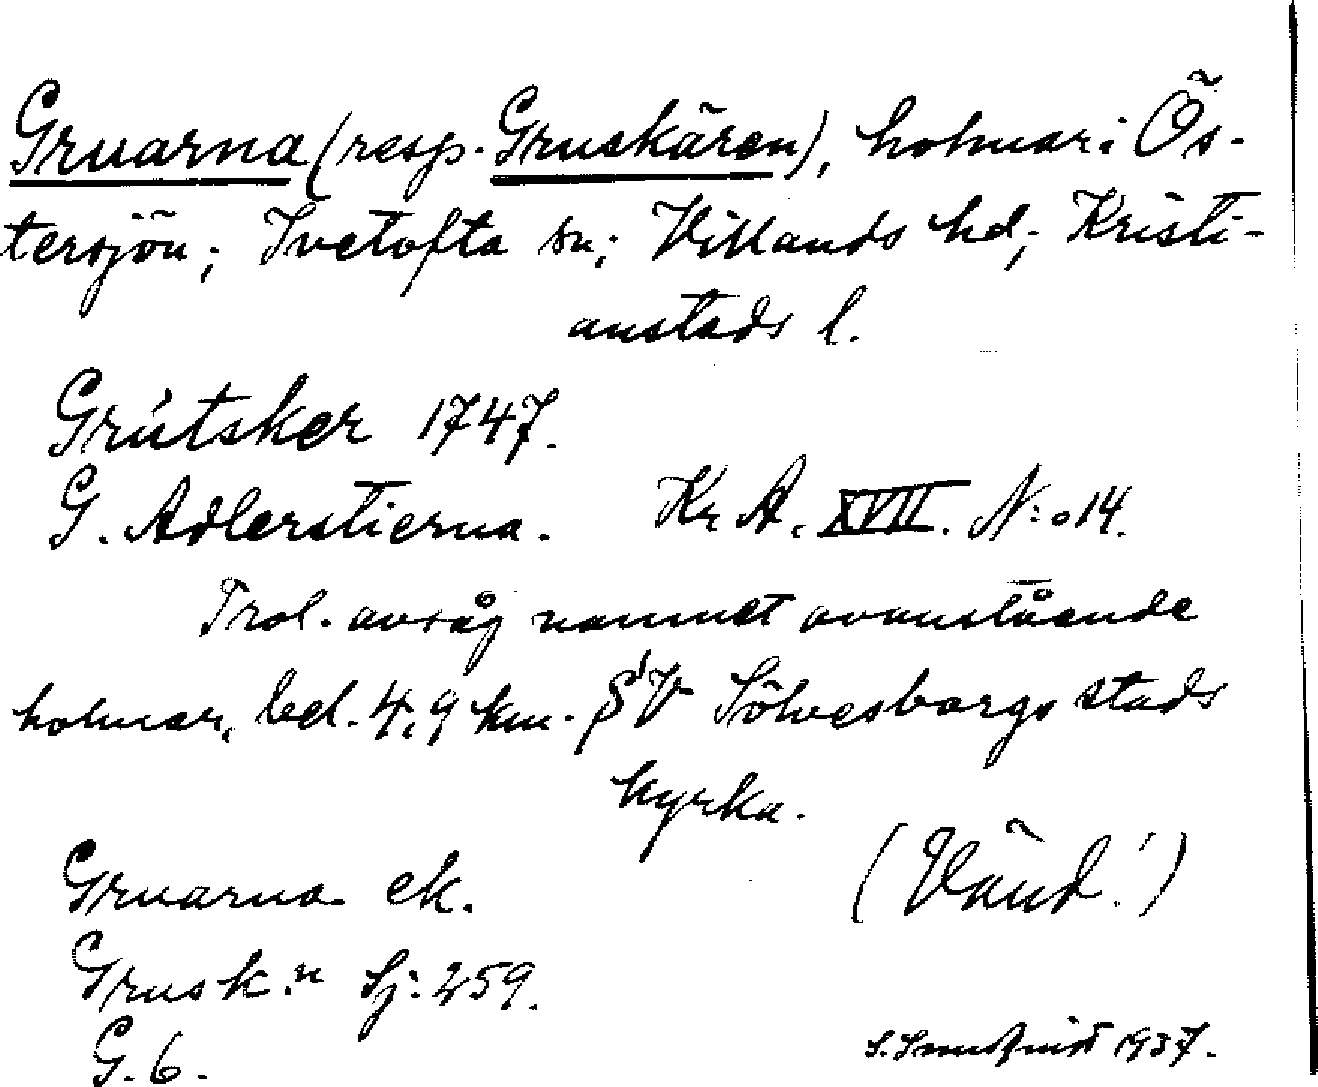 Gruarna (resp. Gruskären), holmar i Ös-
tersjön; Ivetofta sn; Villands hd; Kristi-
anstads l.
Grútsker 1747.
G. Adlerstierna. Kr A. XVII. N:o 14.
Trol. avsåg namnet ovanstående
holmar, bel. 4,9 km. S'V Sölvesborgs stads
kyrka.
Gruarna ek. (Vänd!)
Grusk:n Sj: 259.
G. 6. 1937.